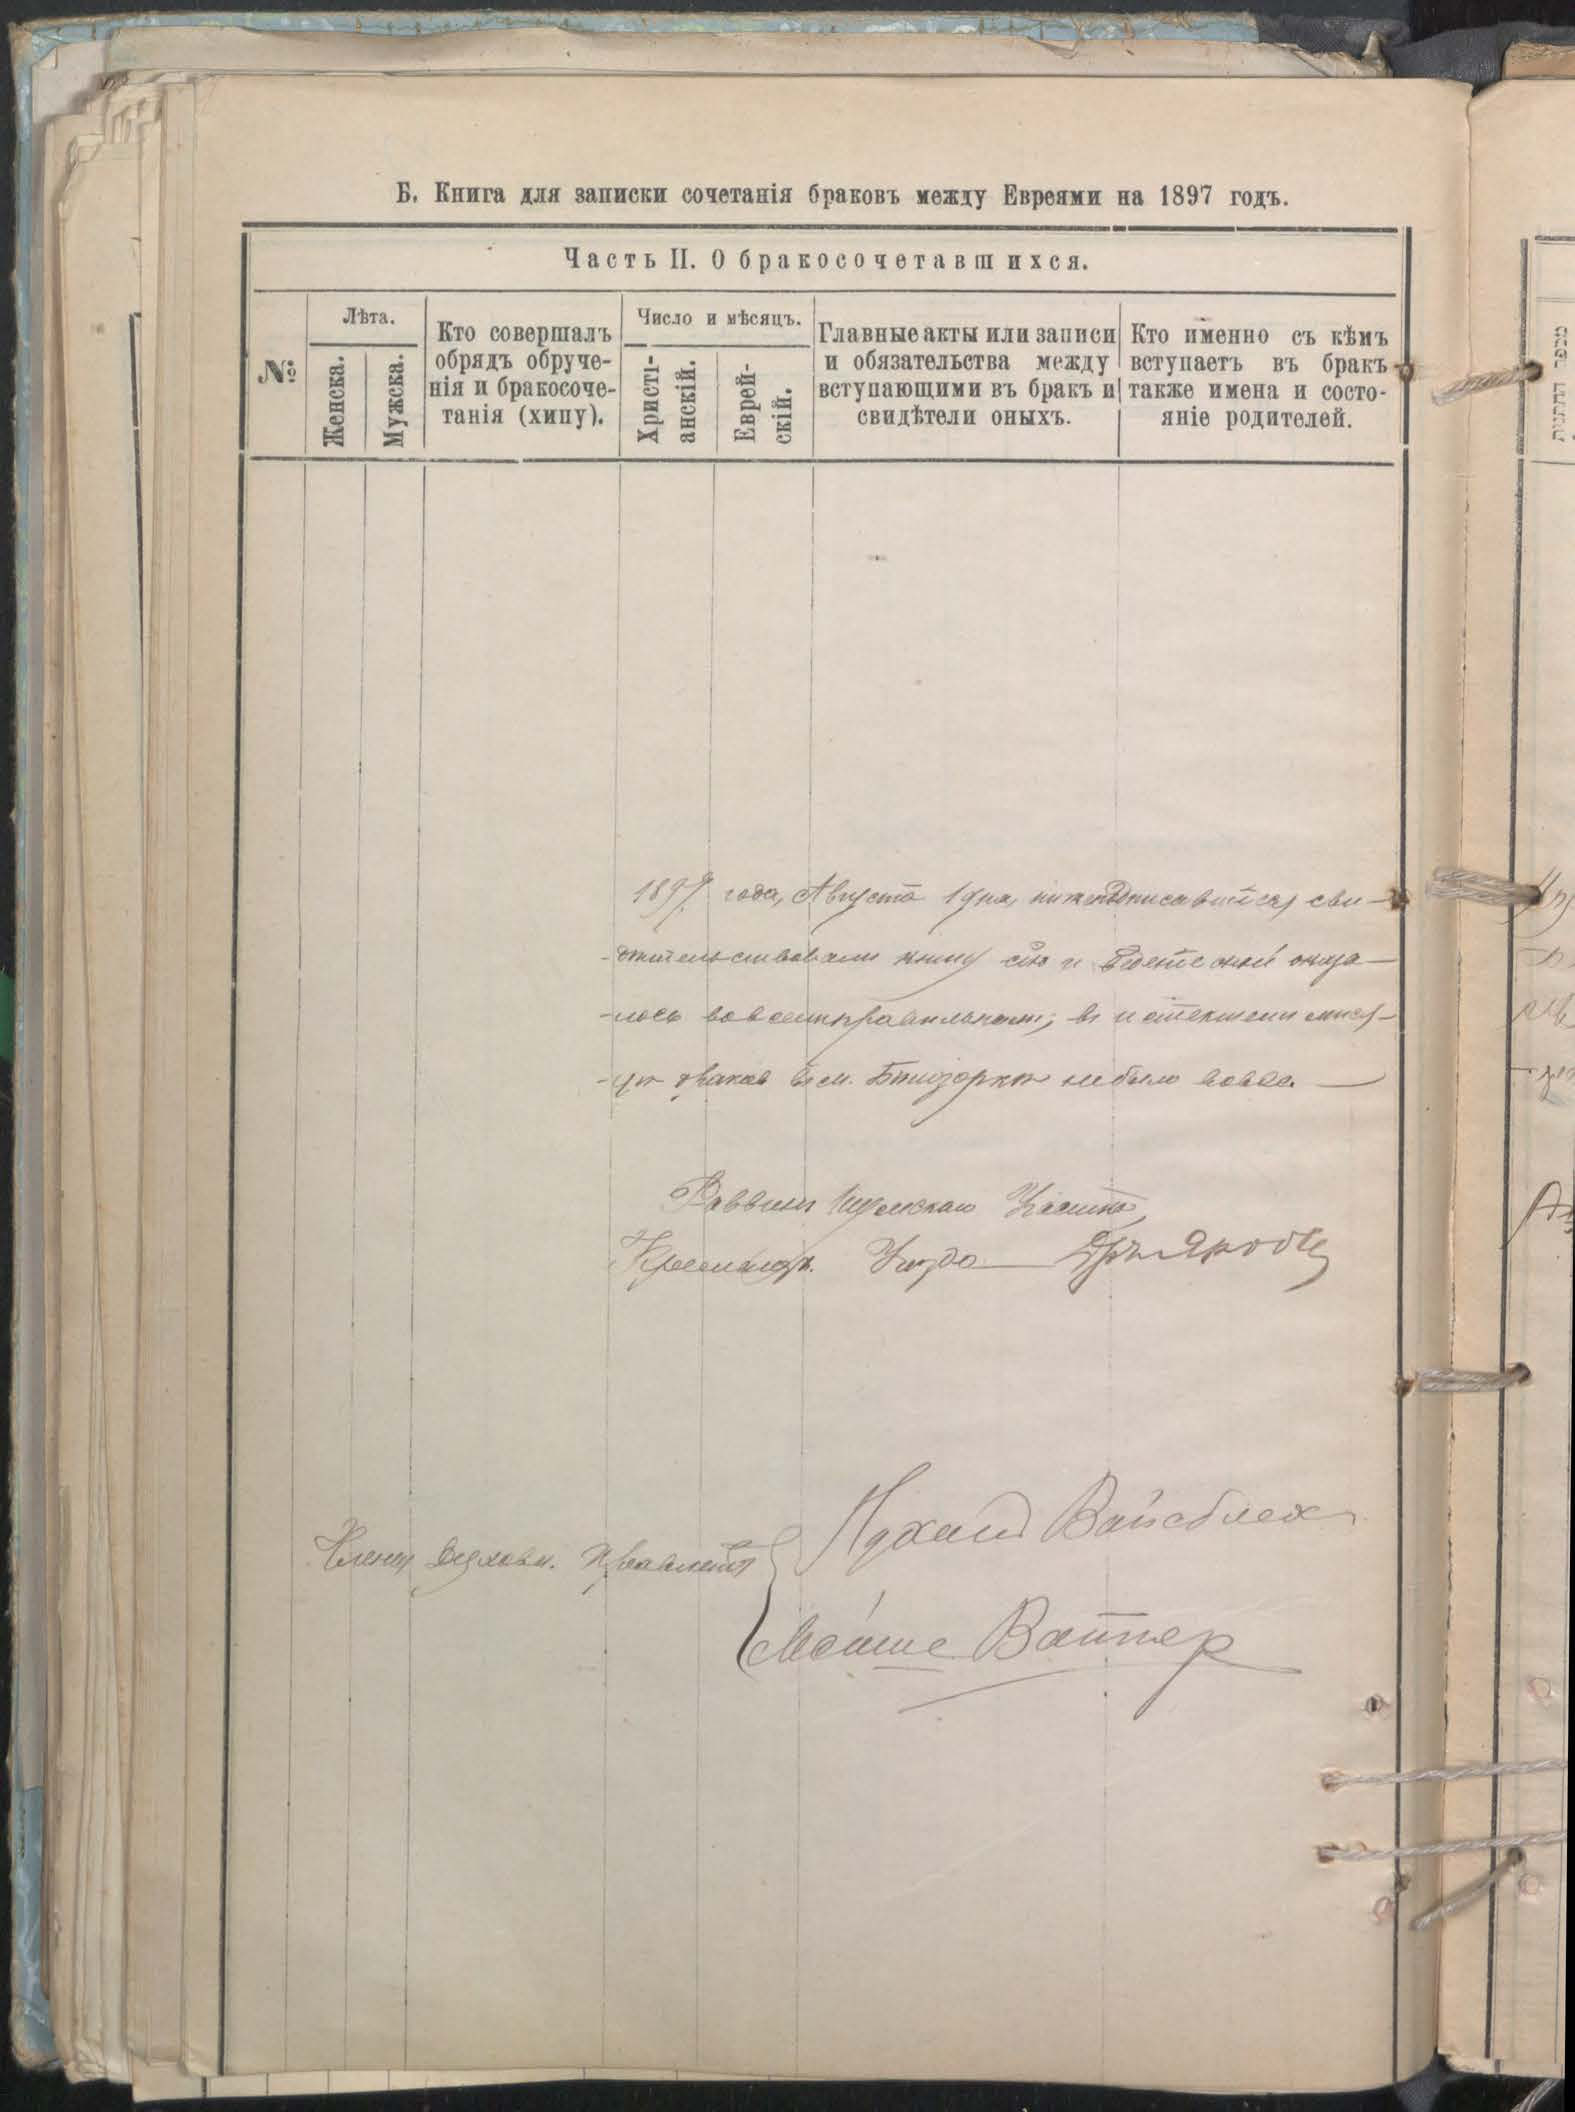 Б. Книга для записки сочетанія браковъ между Евреями на 1897 годъ.
Часть II. О бракосочетавшихся.
№
Лѣта.
Женска.
Мужска.
Кто совершалъ
обрядъ обруче-
нія и бракосоче-
танія (хипу).
Число и мѣсяцъ.
Христі-
анскій.
Еврей-
скій.
Главные акты или записи
и обязательства между
вступающими въ бракъ и
свидѣтели оныхъ.
Кто именно съ кѣмъ
вступаетъ въ бракъ
также имена и состо-
яніе родителей.
1897 года, Августа 1 дня, нижеподписавшійся сви-
-дѣтельствовали книгу сію и веденіе оной оказа-
-лось во всемъ правильнымъ; въ истекшемъ мѣся-
-цѣ браковъ въ м. Бѣлозоркѣ не было вовсе.
Раввинъ Шумскаго Участка
Кременецъ. Уѣзда
Члены Духовн. Правленія
Вайсблех
Мойше Вайнер